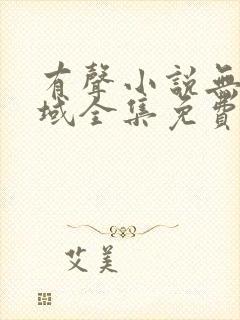 有聲小說無
域全集免費
艾美